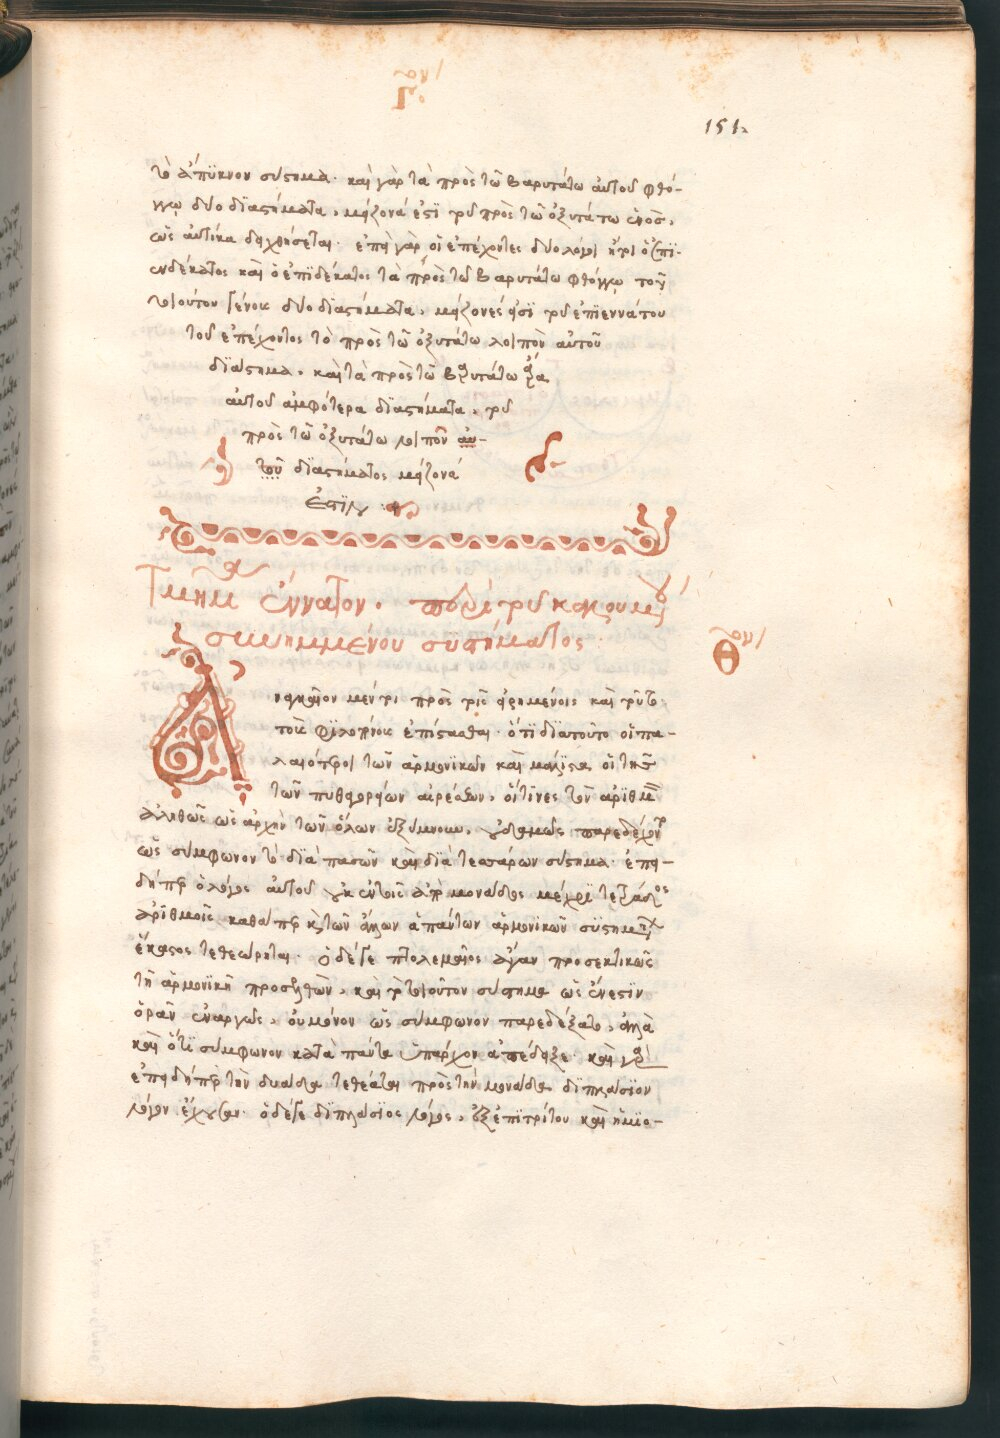 151
τὸ ἄπυκνον σύστημα. καὶ γὰρ τὰ πρὸς τῶ βαρυτάτω αὐτοῦ φθό-
γγω δύο διαστήματα, μείζονά ἐστι τοῦ πρὸς τῶ ὀξυτάτω ἑνός,
ὡς αὐτίκα δειχθήσεται. ἐπεὶ γὰρ οἱ ἐπέχοντες δύο λόγοι ἤτοι ὁ ἐπι-
ενδέκατος καὶ ὁ ἐπιδέκατος τὰ πρὸς τῶ βαρυτάτω φθόγγω τοῦ
τοιούτου γένους δύο διαστήματα, μείζονές εἰσι τοῦ ἐπιεννάτου
τοῦ ἐπέχοντος τὸ πρὸς τῶ ὀξυτάτω λοιπὸν αὐτοῦ
διάστημα, καὶ τὰ πρὸς τῶ βαρυτάτω ἄρα
αὐτοῦ ἀμφότερα διαστήματα, τοῦ
πρὸς τῶ ὀξυτάτω λοιποῦ αὐ-
τοῦ διαστήματος μείζονά
ἐστιν
Τμῆμα ἔννατον. περὶ τοῦ καλουμένου
συνημμένου συστήματος
θον
Ἀναγκαῖον μέντοι πρὸς τοῖς εἰρημένοις καὶ τοῦτο
τοὺς φιλοπόνους ἐπίστασθαι. ὅτι διατοῦτο οἱ πα-
λαιότεροι τῶν ἁρμονικῶν καὶ μάλιστα οἱ τῆς
τῶν πυθαγορείων αἱρέσεως, οἵτινες τὸν ἀριθμὸν
ἀληθῶς ὡς ἀρχὴν τῶν ὅλων ἐξύμνουν, οὐδαμῶς παρεδέχοντο
ὡς σύμφωνον τὸ διὰ πασῶν καὶ διὰ τεσσάρων σύστημα. ἐπει-
δήπερ ὁ λόγος αὐτοῦ οὐκ ἐν τοῖς ἀπὸ μονάδος μέχρι τετράδος
ἀριθμοῖς καθάπερ καὶ τῶν ἄλλων ἁπάντων ἁρμονικῶν συστημάτων
ἕκαστος τεθεώρηται. ὁ δέ γε πτολεμαῖος ἄγαν προσεκτικῶς
τῆ ἁρμονικῆ προσελθὼν, καὶ τὸ τοιοῦτον σύστημα ὡς ἔνεστιν
ὁρᾶν ἐναργῶς, οὐ μόνον ὡς σύμφωνον παρεδέξατο, ἀλλὰ
καὶ ὅτι σύμφωνον κατὰ πάντα ὑπάρχον ἀπέδειξε. καὶ γὰρ
ἐπειδήπερ τὴν δυάδα τεθέαται πρὸς τὴν μονάδα διπλάσιον
λόγον ἔχουσαν. ὁ δέ γε διπλάσιος λόγος, ἐξ ἐπιτρίτου καὶ ἡμιο-